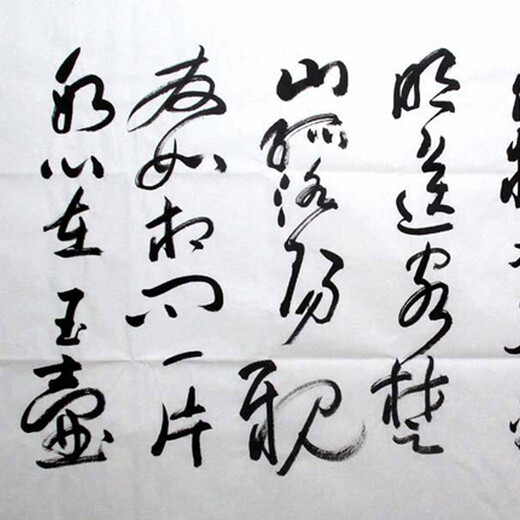 明送客楚
山孤洛阳亲
友如相问一片
冰心在玉壶